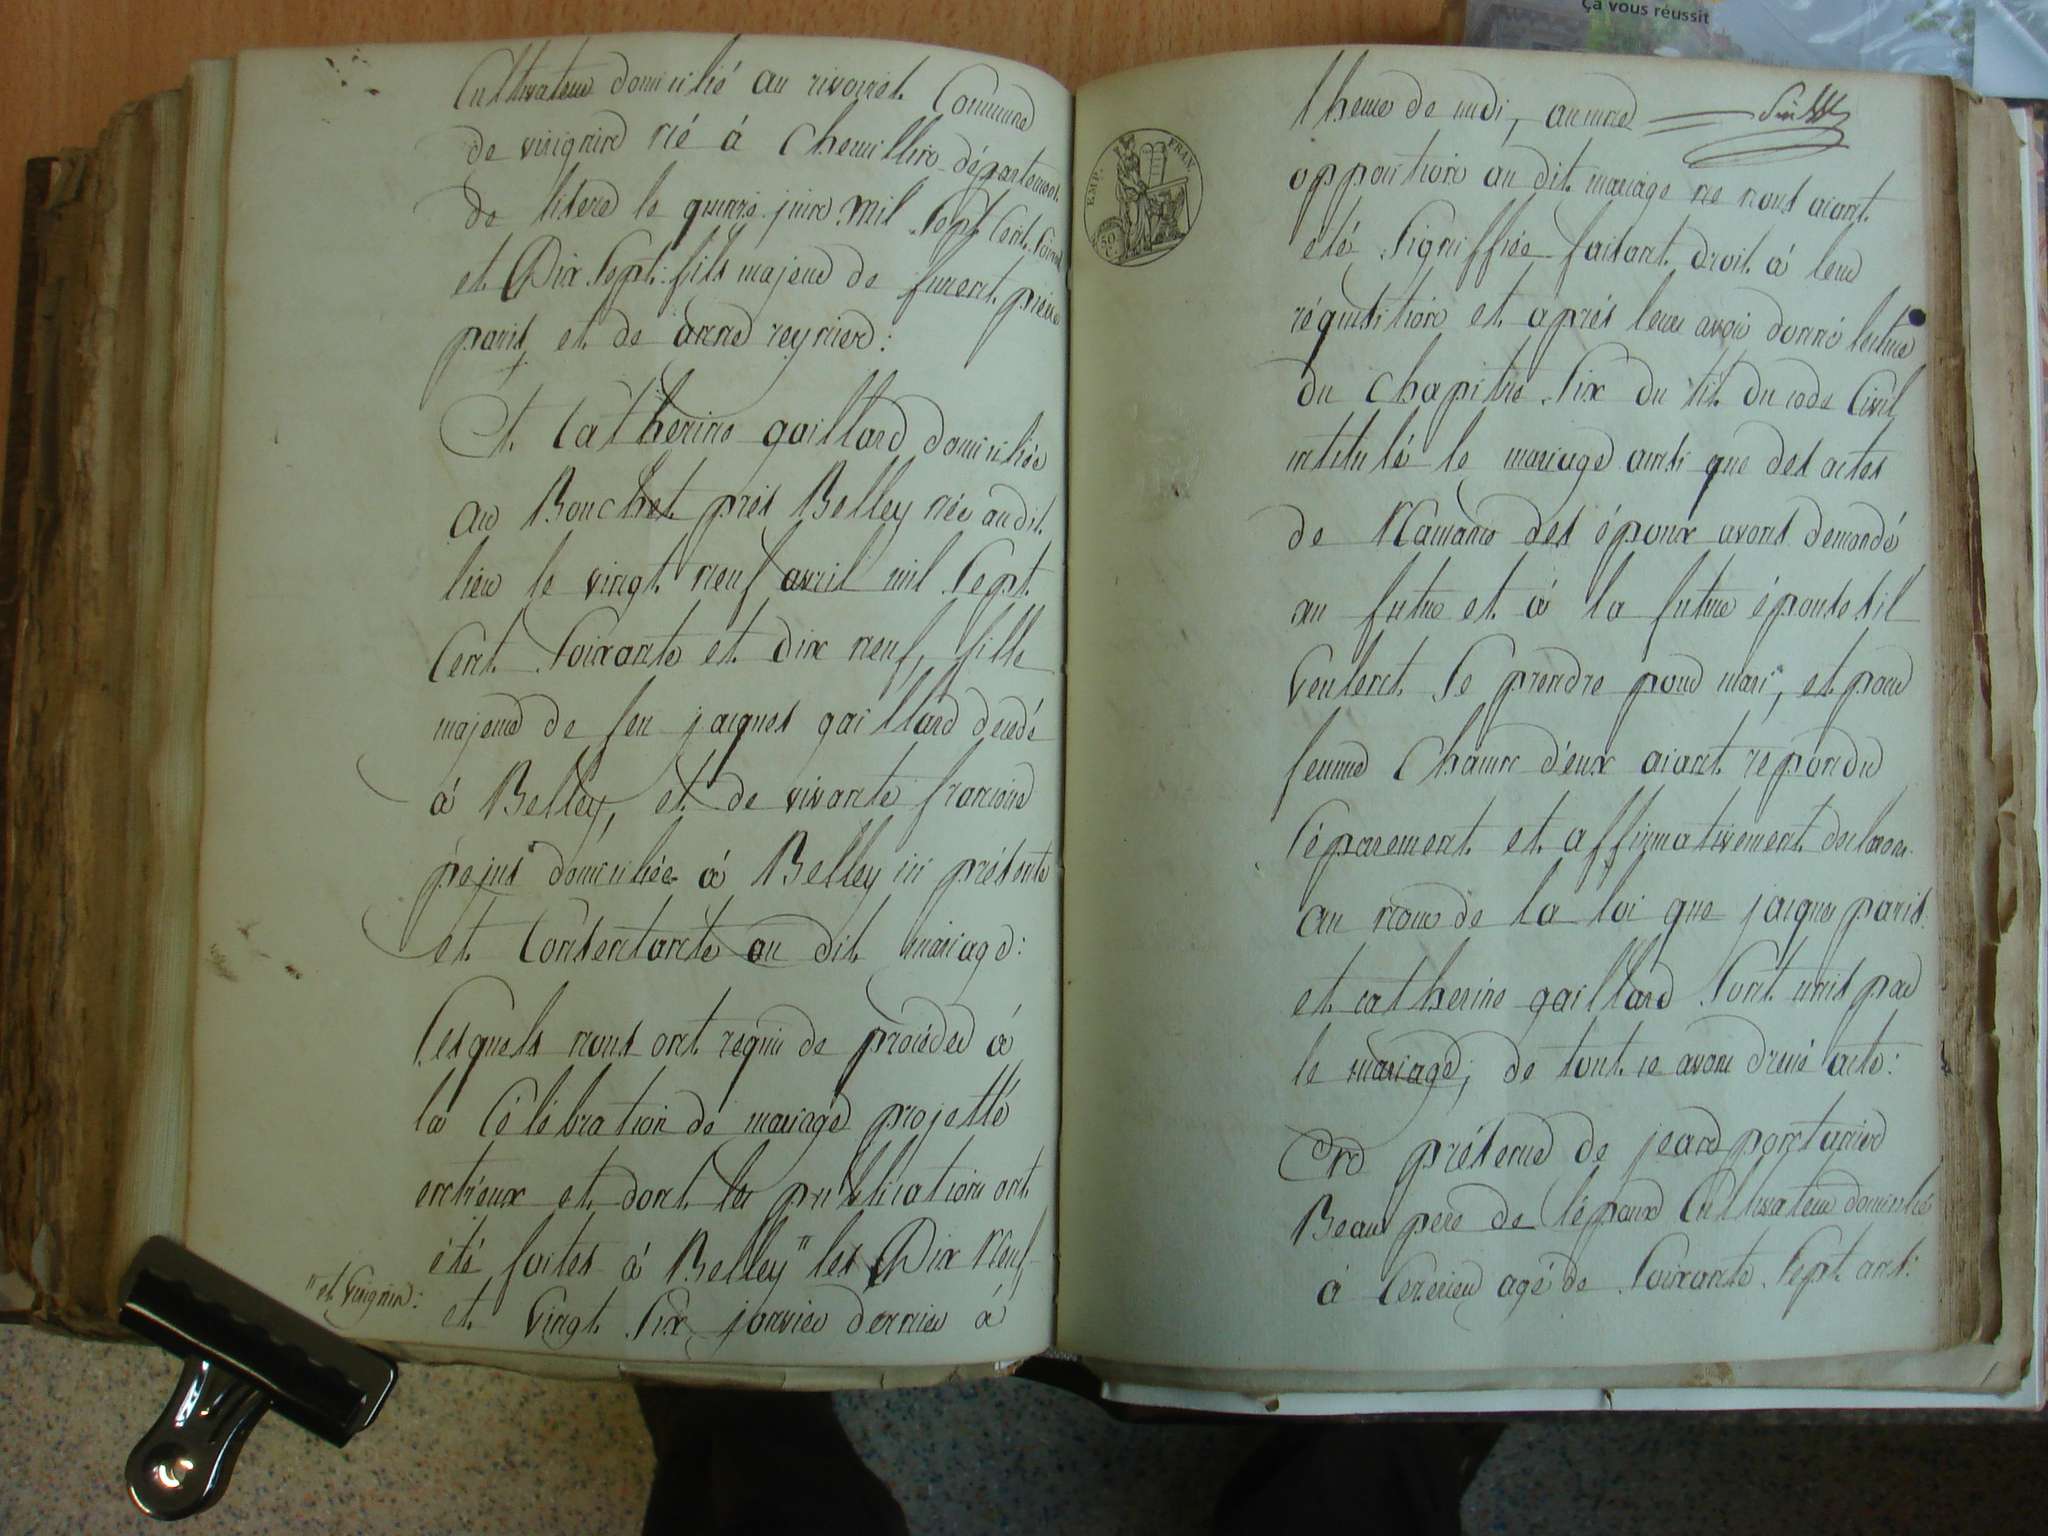 Cultivateur domicilié au rivoiret Commune
de virignin né à Cheuillin département
de lisere le quinze juin mil Sept Cent Soixante
et Dix Sept fils majeur de furent pierre
paris et de anne reynier :
Et Catherine gaillard domiciliée
au Bouchet près Belley née au dit
lieu le vingt neuf avril mil Sept
Cent Soixante et dix neuf, fille
majeure de feu jacques gaillard decedé
à Belley, et de vivante francoise
pejus domiciliée à Belley ici présente
et Consentante au dit mariage :
Lesquels nous ont requis de procéder à
la Célébration de mariage projetté
entreux et dont les publications ont
été faites à Belley " les Dix Neuf
" et Virignin :
et Vingt Six janvier dernier à
lheure de midi, aucune
EMP. FRAN.
50 C.
opposition au dit mariage ne nous aiant
été Signiffiée faisant droit à leur
réquisition et après leur avoir donné lecture
du Chapitre Six du tit. du code Civil
intitulé le mariage ainsi que des actes
de Naissance des époux avons demandé
au futur et à la future épouse s'il
veulent Se prendre pour mari, et pour
femme Chacun d'eux aiant repondu
Séparement et affirmativement declarons
au nom de la loi que jacques paris
et catherine gaillard Sont unis par
le mariage ; de tout ce avons dressé acte :
En présence de jean pontunier
Beau pere de l'époux Cultivateur domicilié
à Cezerieu agé de Soixante Sept ans :
ça vous réussit